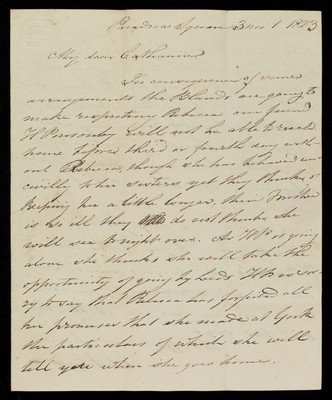 Square 3 mo 1 1823
My dear Catharine
In consequence of some
arrangements the Blands are going to
make respecting Rebecca our friend
H Ponsonby will not be able to reach
home before third or fourth day with
out Rebecca, though she has behaved un
civilly to her sisters yet they think of
keeping her a little longer, their Mother
is so ill they do not think she
will see to night over. As HP is going
alone she thinks she will take the
opportunity of going by Leeds HP is sor
ry to say that Rebecca has forfeited all
her promises that she made at York
the particulars of which she will
tell you when she goes home.